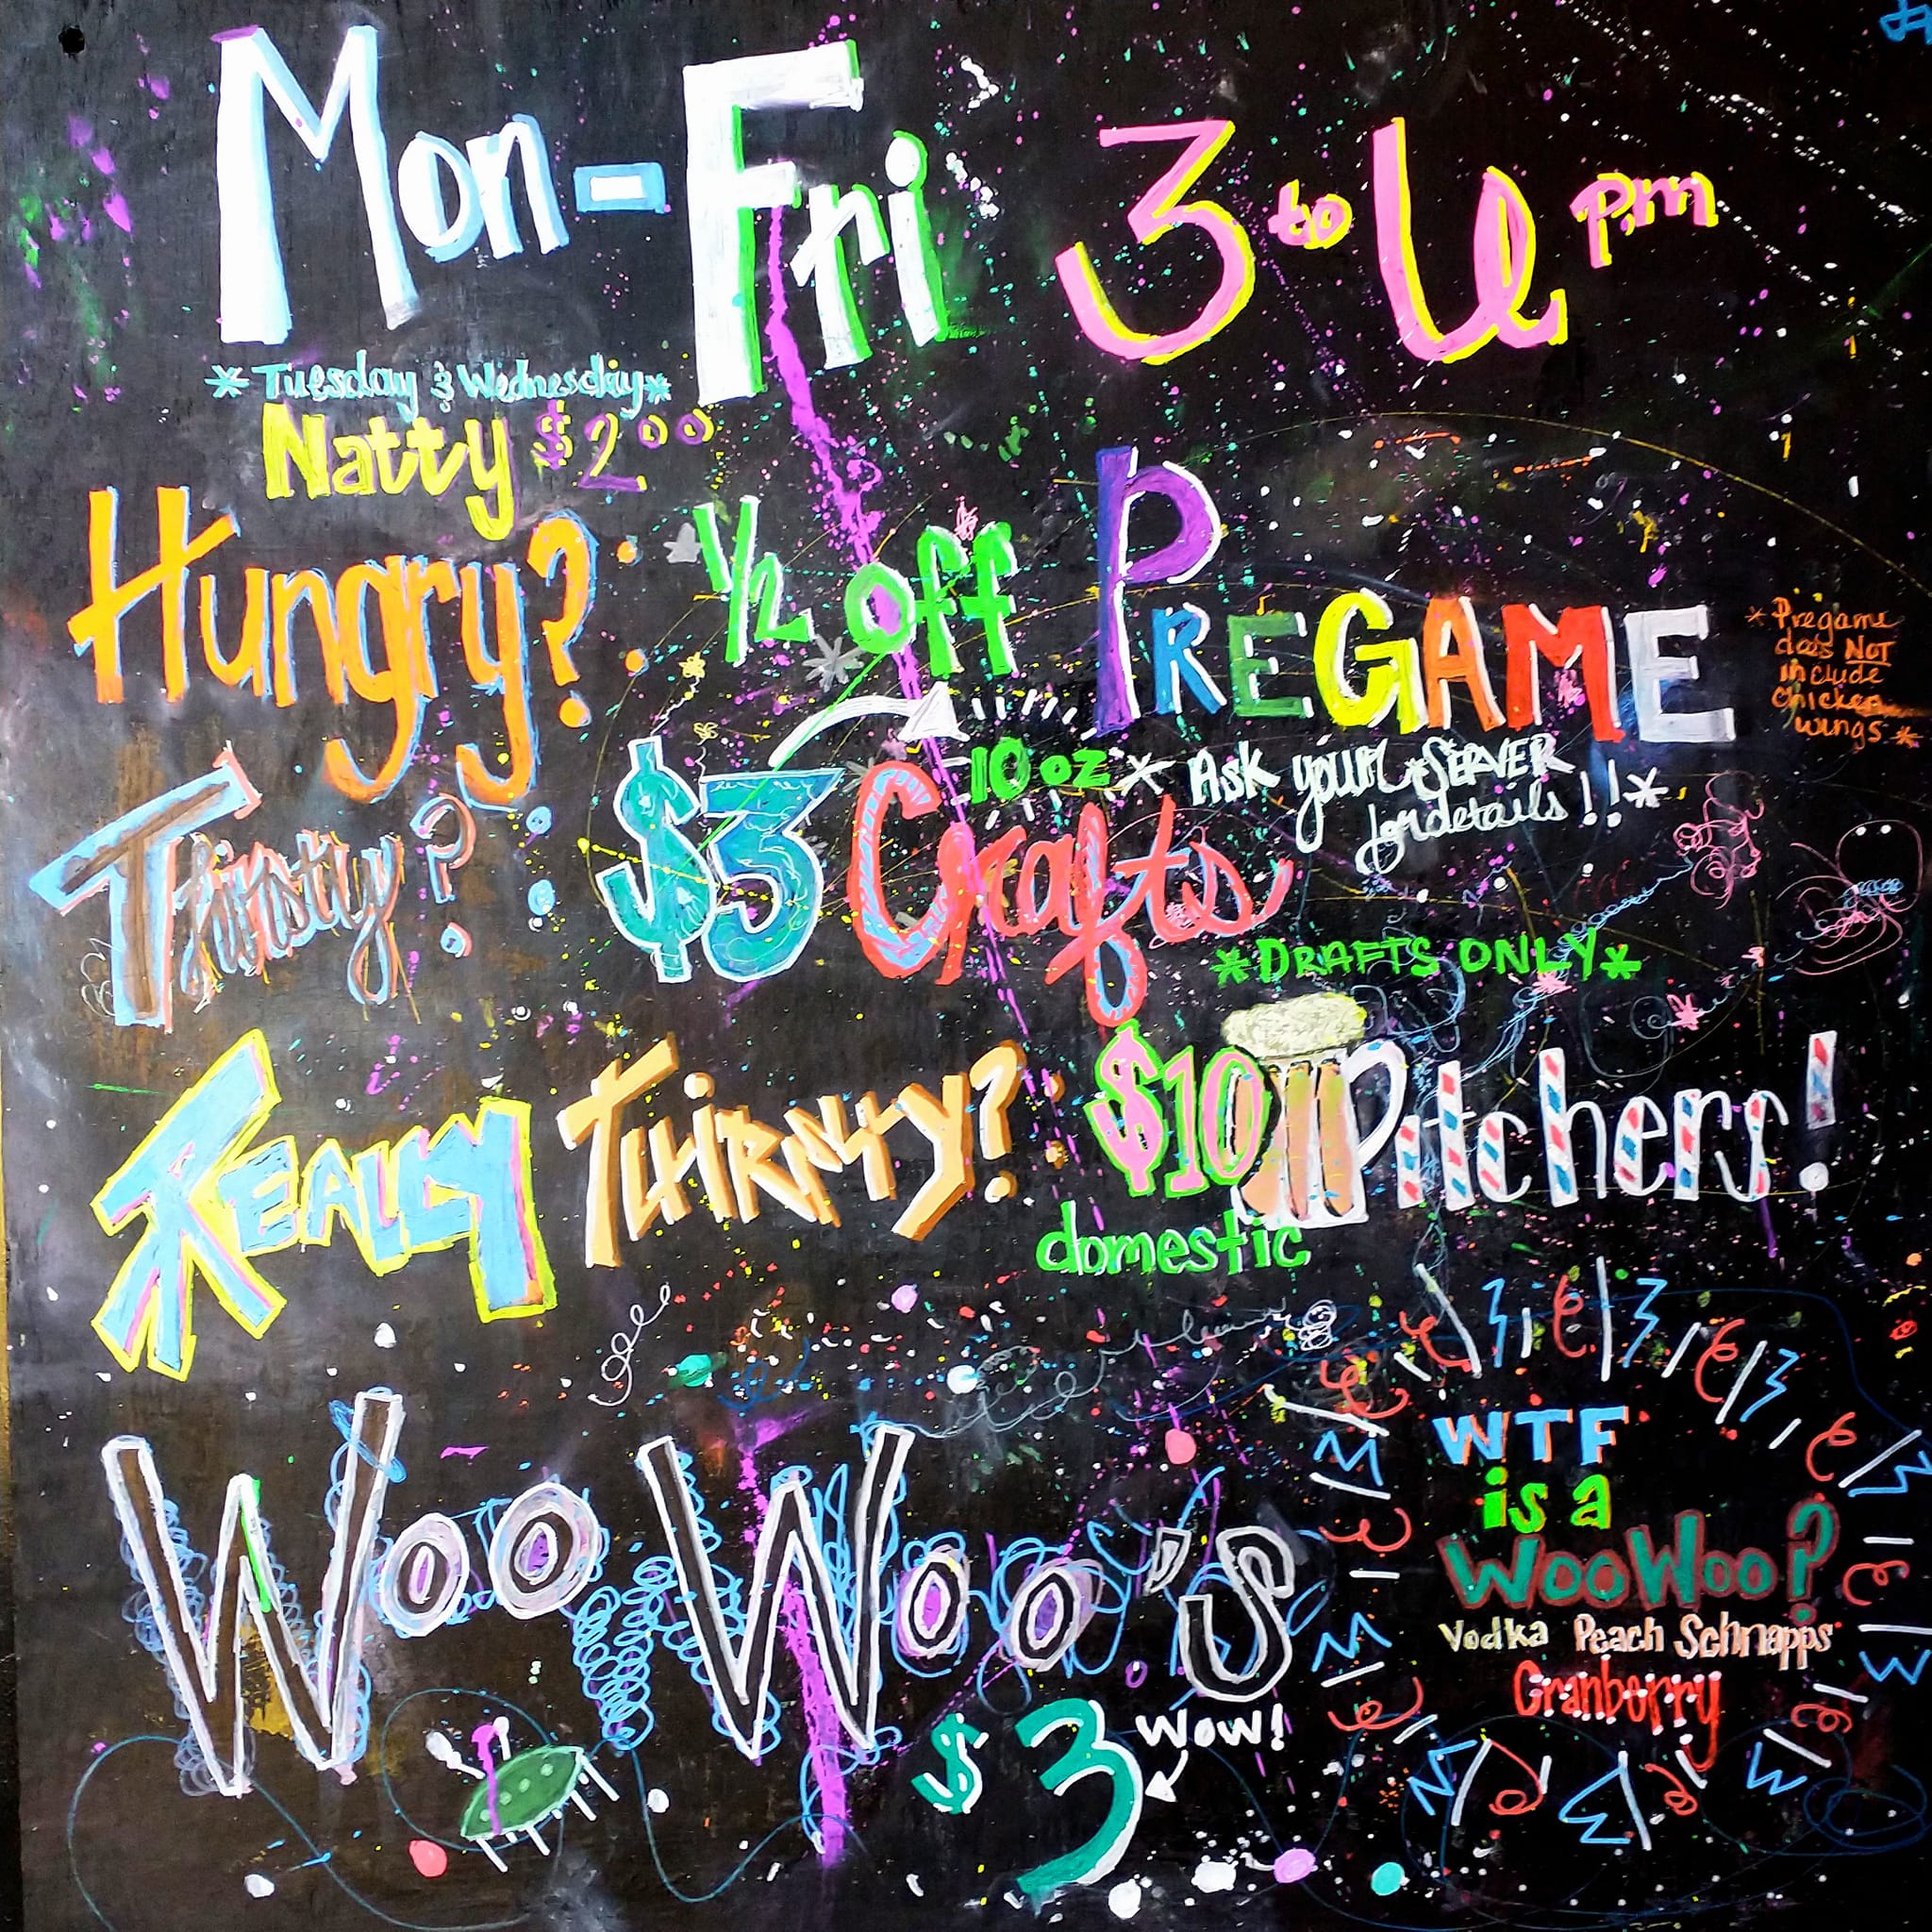 Mon-Fri 3 to 6 pm
*Tuesday & Wednesday*
Natty $2.00
Hungry?: 1/2 off PREGAME
*Pregame
does NOT
include
chicken
wings.*
Thirsty?: $3 Crafts
10 oz
*Ask your SERVER
for details!!*
*DRAFTS ONLY*
REALLY THIRSTY?: $10 Pitchers!
domestic
Woo Woo's
$3
Wow!
WTF
is a
WooWoo?
Vodka Peach Schnapps
Cranberry